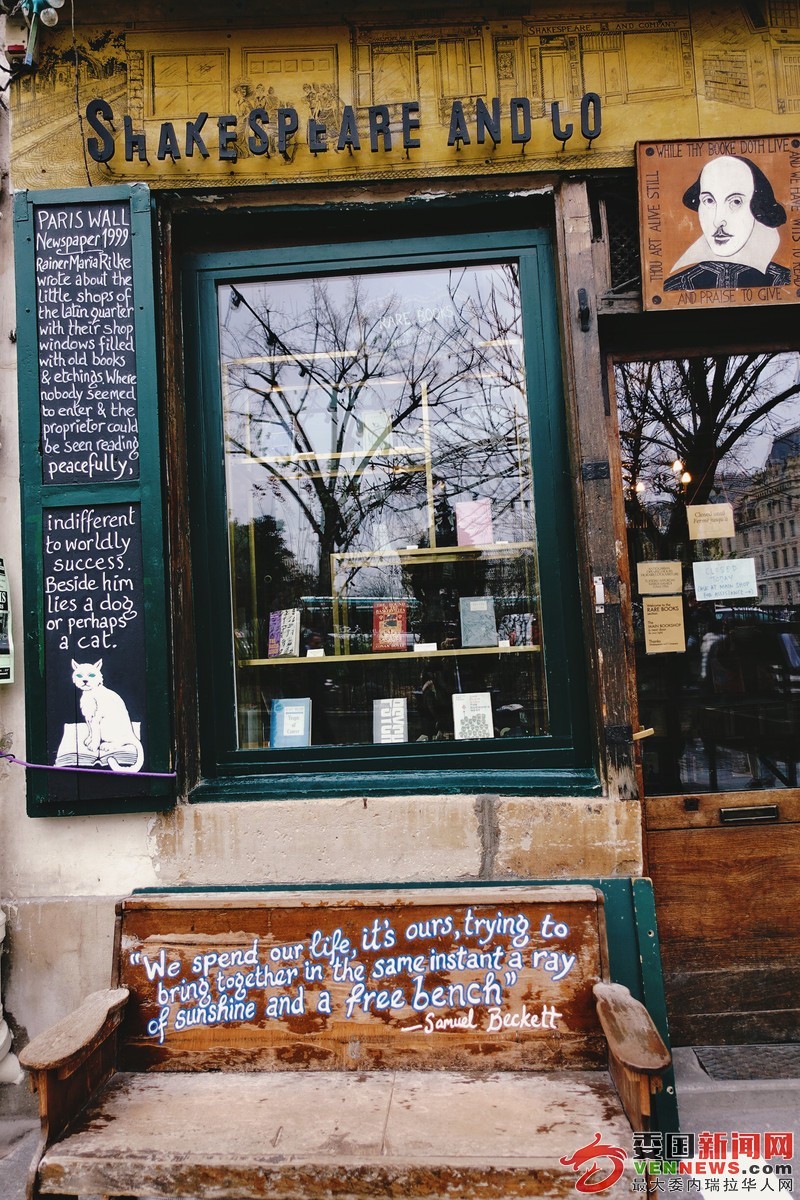 SHAKESPEARE AND COMPANY
SHAKESPEARE AND CO
PARIS WALL
Newspaper 1999
Rainer Maria Rilke
wrote about the
little shops of
the latin quarter
with their shop
windows filled
with old books
& etchings. Where
nobody seemed
to enter & the
proprietor could
be seen reading
peacefully,
indifferent
to worldly
success.
Beside him
lies a dog
or perhaps
a cat.
RARE BOOKS
WHILE THY BOOKE DOTH LIVE
AND WE HAVE WITS TO READ
THOU ART ALIVE STILL
AND PRAISE TO GIVE
CLOSED
RARE BOOKS
"We spend our life, it's ours, trying to
bring together in the same instant a ray
of sunshine and a free bench"
—Samuel Beckett
委国新闻网
VENNEWS.com
最大委内瑞拉华人网